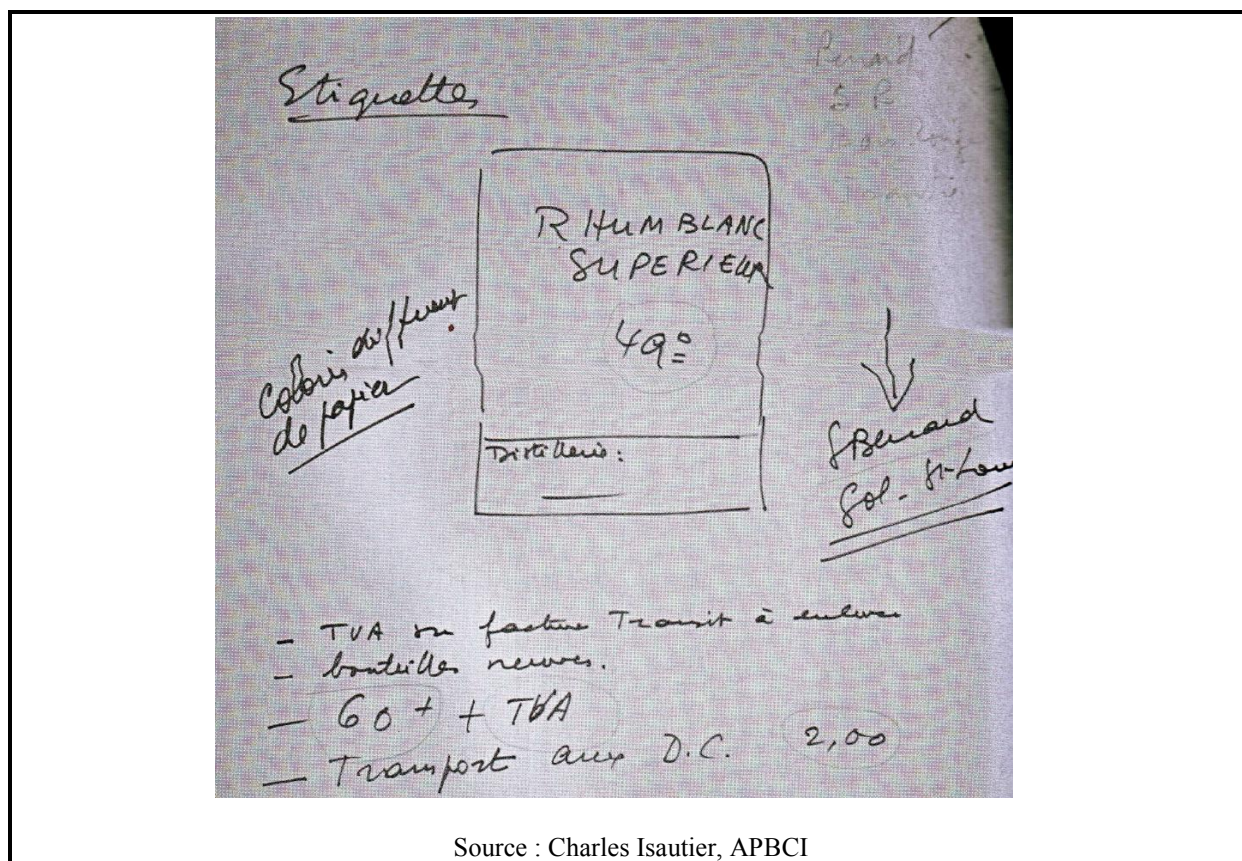 Etiquettes
RHUM BLANC
SUPERIEUR
49°
Coloris différent
de papier
Distillerie :
Bénard
Gol - St-Lou
- TVA sur facture Transit à enlever
- bouteilles neuves.
- 60 + + TVA
- Transport aux D.C. 2,00
Source : Charles Isautier, APBCI